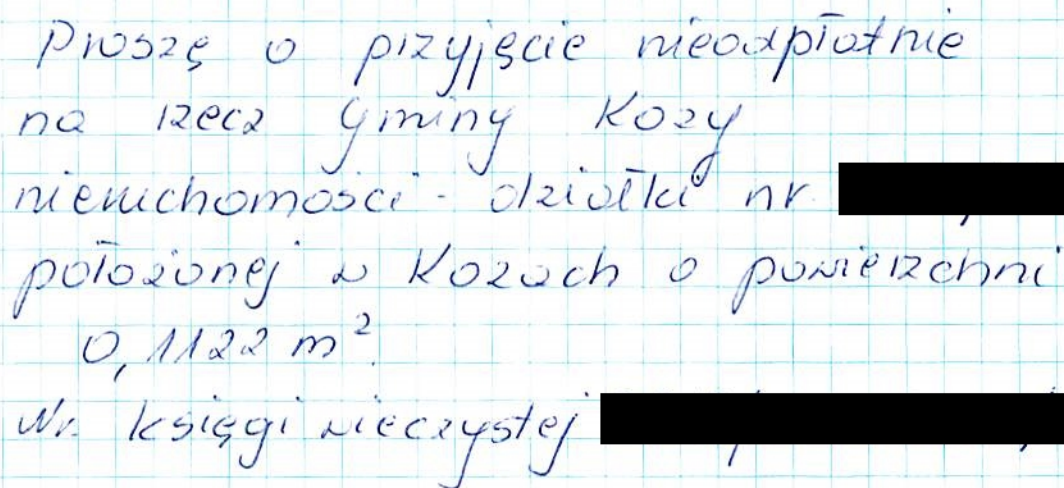 Proszę o przyjęcie nieodpłatnie
na rzecz Gminy Kozy
nieruchomości - działki nr.
położonej w Kozach o powierzchni
0,1122 m².
Nr. księgi wieczystej